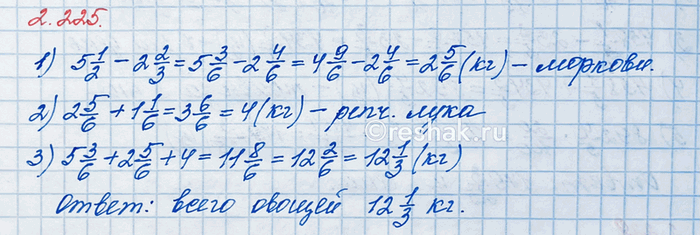 2.225.
1) 5 1/2 − 2 2/3 = 5 3/6 − 2 4/6 = 4 9/6 − 2 4/6 = 2 5/6 (кг) – моркови.
2) 2 5/6 + 1 1/6 = 3 6/6 = 4 (кг) – репч. лука
©reshak.ru
3) 5 3/6 + 2 5/6 + 4 = 11 8/6 = 12 2/6 = 12 1/3 (кг)
Ответ: всего овощей 12 1/3 кг.